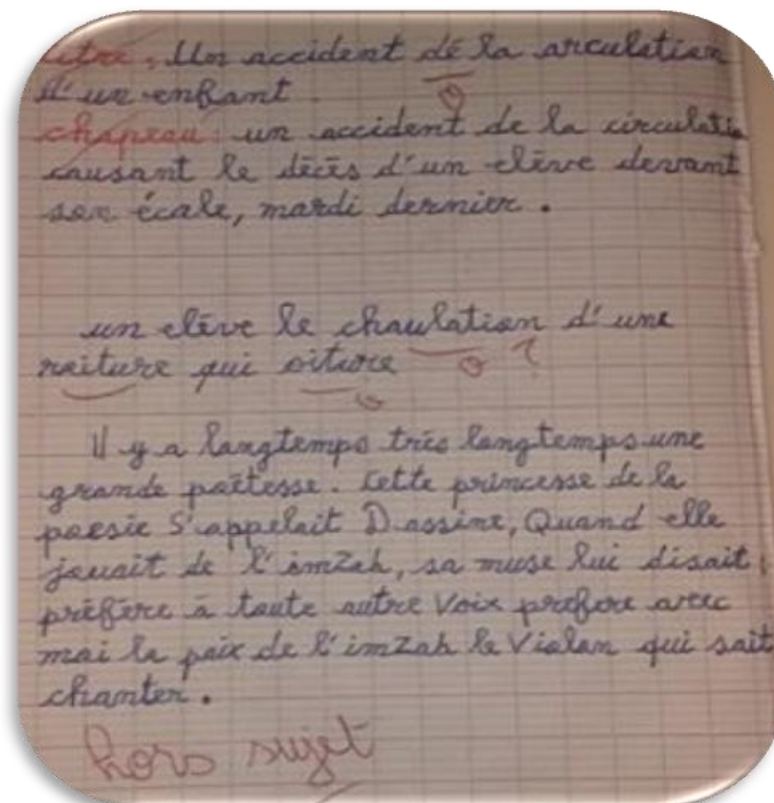 titre : Un accident dé la arculation
d'un enfant
chapeau : un accident de la circulatio
causant le décès d'un elève devant
son école, mardi dernier.
un elève le chaulation d'une
voiture qui oiture
?
Il y a longtemps trés longtemps une
grande poètesse. cette princesse de la
poesie S'appelait Dassine, Quand elle
jouait de l'imzah, sa muse lui disait :
préfère à toute autre Voix prefere avec
moi la paix de l'imzah le Violon qui sait
chanter.
hors sujet